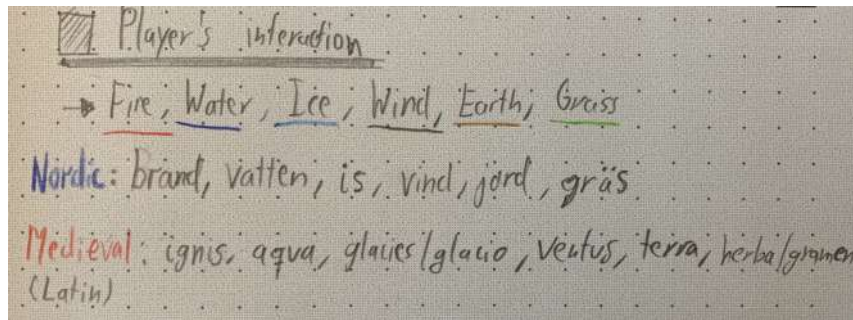 Player's interaction
→ Fire, Water, Ice, Wind, Earth, Grass
Nordic: brand, vatten, is, vind, jord, gräs
Medieval: ignis, aqua, glacies/glacio, ventus, terra, herba/gramen
(Latin)